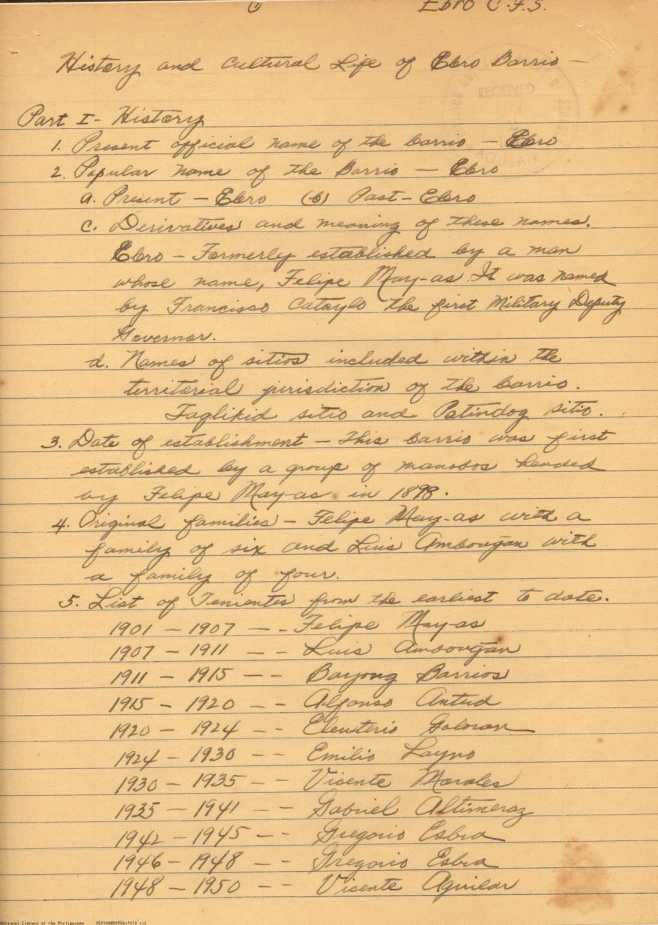 6
Ebro C.F.S.
History and Cultural Life of Ebro Barrio —
RECEIVED
Part I - History
1. Present official name of the barrio — Ebro
2. Popular name of the Barrio — Ebro
a. Present — Ebro (b) Past — Ebro
c. Derivatives and meaning of these names.
Ebro — Formerly established by a man
whose name, Felipe May-as It was named
by Francisco Cataylo the first Military Deputy
Governor.
d. Names of sitios included within the
territorial jurisdiction of the barrio.
Taglikid sitio and Patindog sitio.
3. Date of establishment — This barrio was first
established by a group of manobos headed
by Felipe May-as in 1898.
4. Original families — Felipe May-as with a
family of six and Luis Ambongan with
a family of four.
5. List of Tenientes from the earliest to date.
1901 — 1907 — - Felipe May-as
1907 — 1911 — - Luis Ambongan
1911 — 1915 — - Bayong Barrios
1915 — 1920 — - Alfonso Antud
1920 — 1924 — - Eleuterio Goloran
1924 — 1930 — - Emilio Layno
1930 — 1935 — - Vicente Morales
1935 — 1941 — - Gabriel Altimeraz
1942 — 1945 — - Gregorio Esbra
1946 — 1948 — - Gregorio Esbra
1948 — 1950 — - Vicente Aguilar
National Library of the Philippines